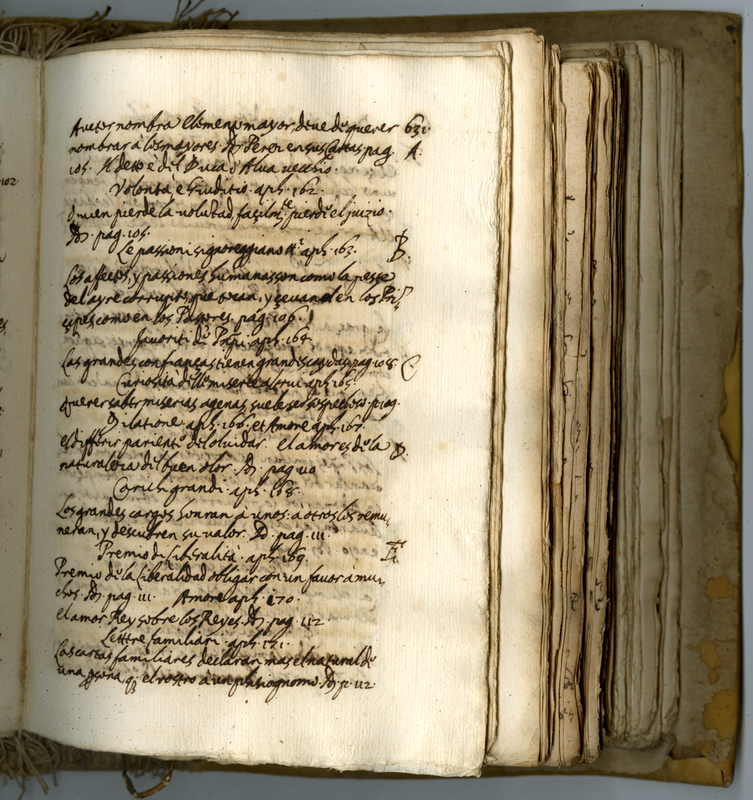 nombra el menor mayor, deve de querer 631
nombrar à los mayores. Perez en sus Cartas pag. A.
105. Il detto è del Duca d'Alua vecchio
Volontà e Giuditio. aph. 162.
Quien pierde la voluntad, facilmte pierde el juizio.
pag. 105.
Le passioni signoreggiano aph. 163. B.
Los affectos, y passiones humanas son como la peste
del ayre corrupto, que tocan, y en los Prin
cipes como en los Pastores. pag. 106.
favoriti de Prñpi. aph. 164.
Las grandes confianças tienen grandes caydas. pag. 108. C
Curiosità delle miserie altrui. aph. 165.
Querer saber miserias agenas suele ser sospechoso. p. 109.
Dilatione. aph. 166. et Amore aph. 167.
El differir pariente del oluidar. El amor es de la D.
naturaleza del buen olor. pag. 110
Carichi grandi. aph. 168.
Los grandes cargos honran à unos: à otros los remu,
neran, y descubren su valor. pag. 111.
Premio di liberalità. aph. 169. E.
Premio de la liberalidad obligar con un favor à mu,
chos. pag. 111. Amore aph. 170.
El amor Rey sobre los Reyes. pag. 112.
Lettre familiari. aph. 171.
Las cartas familiares declaran mas el natural de
una psona, q; el rostro à un phisiognomo. p. 112.
102